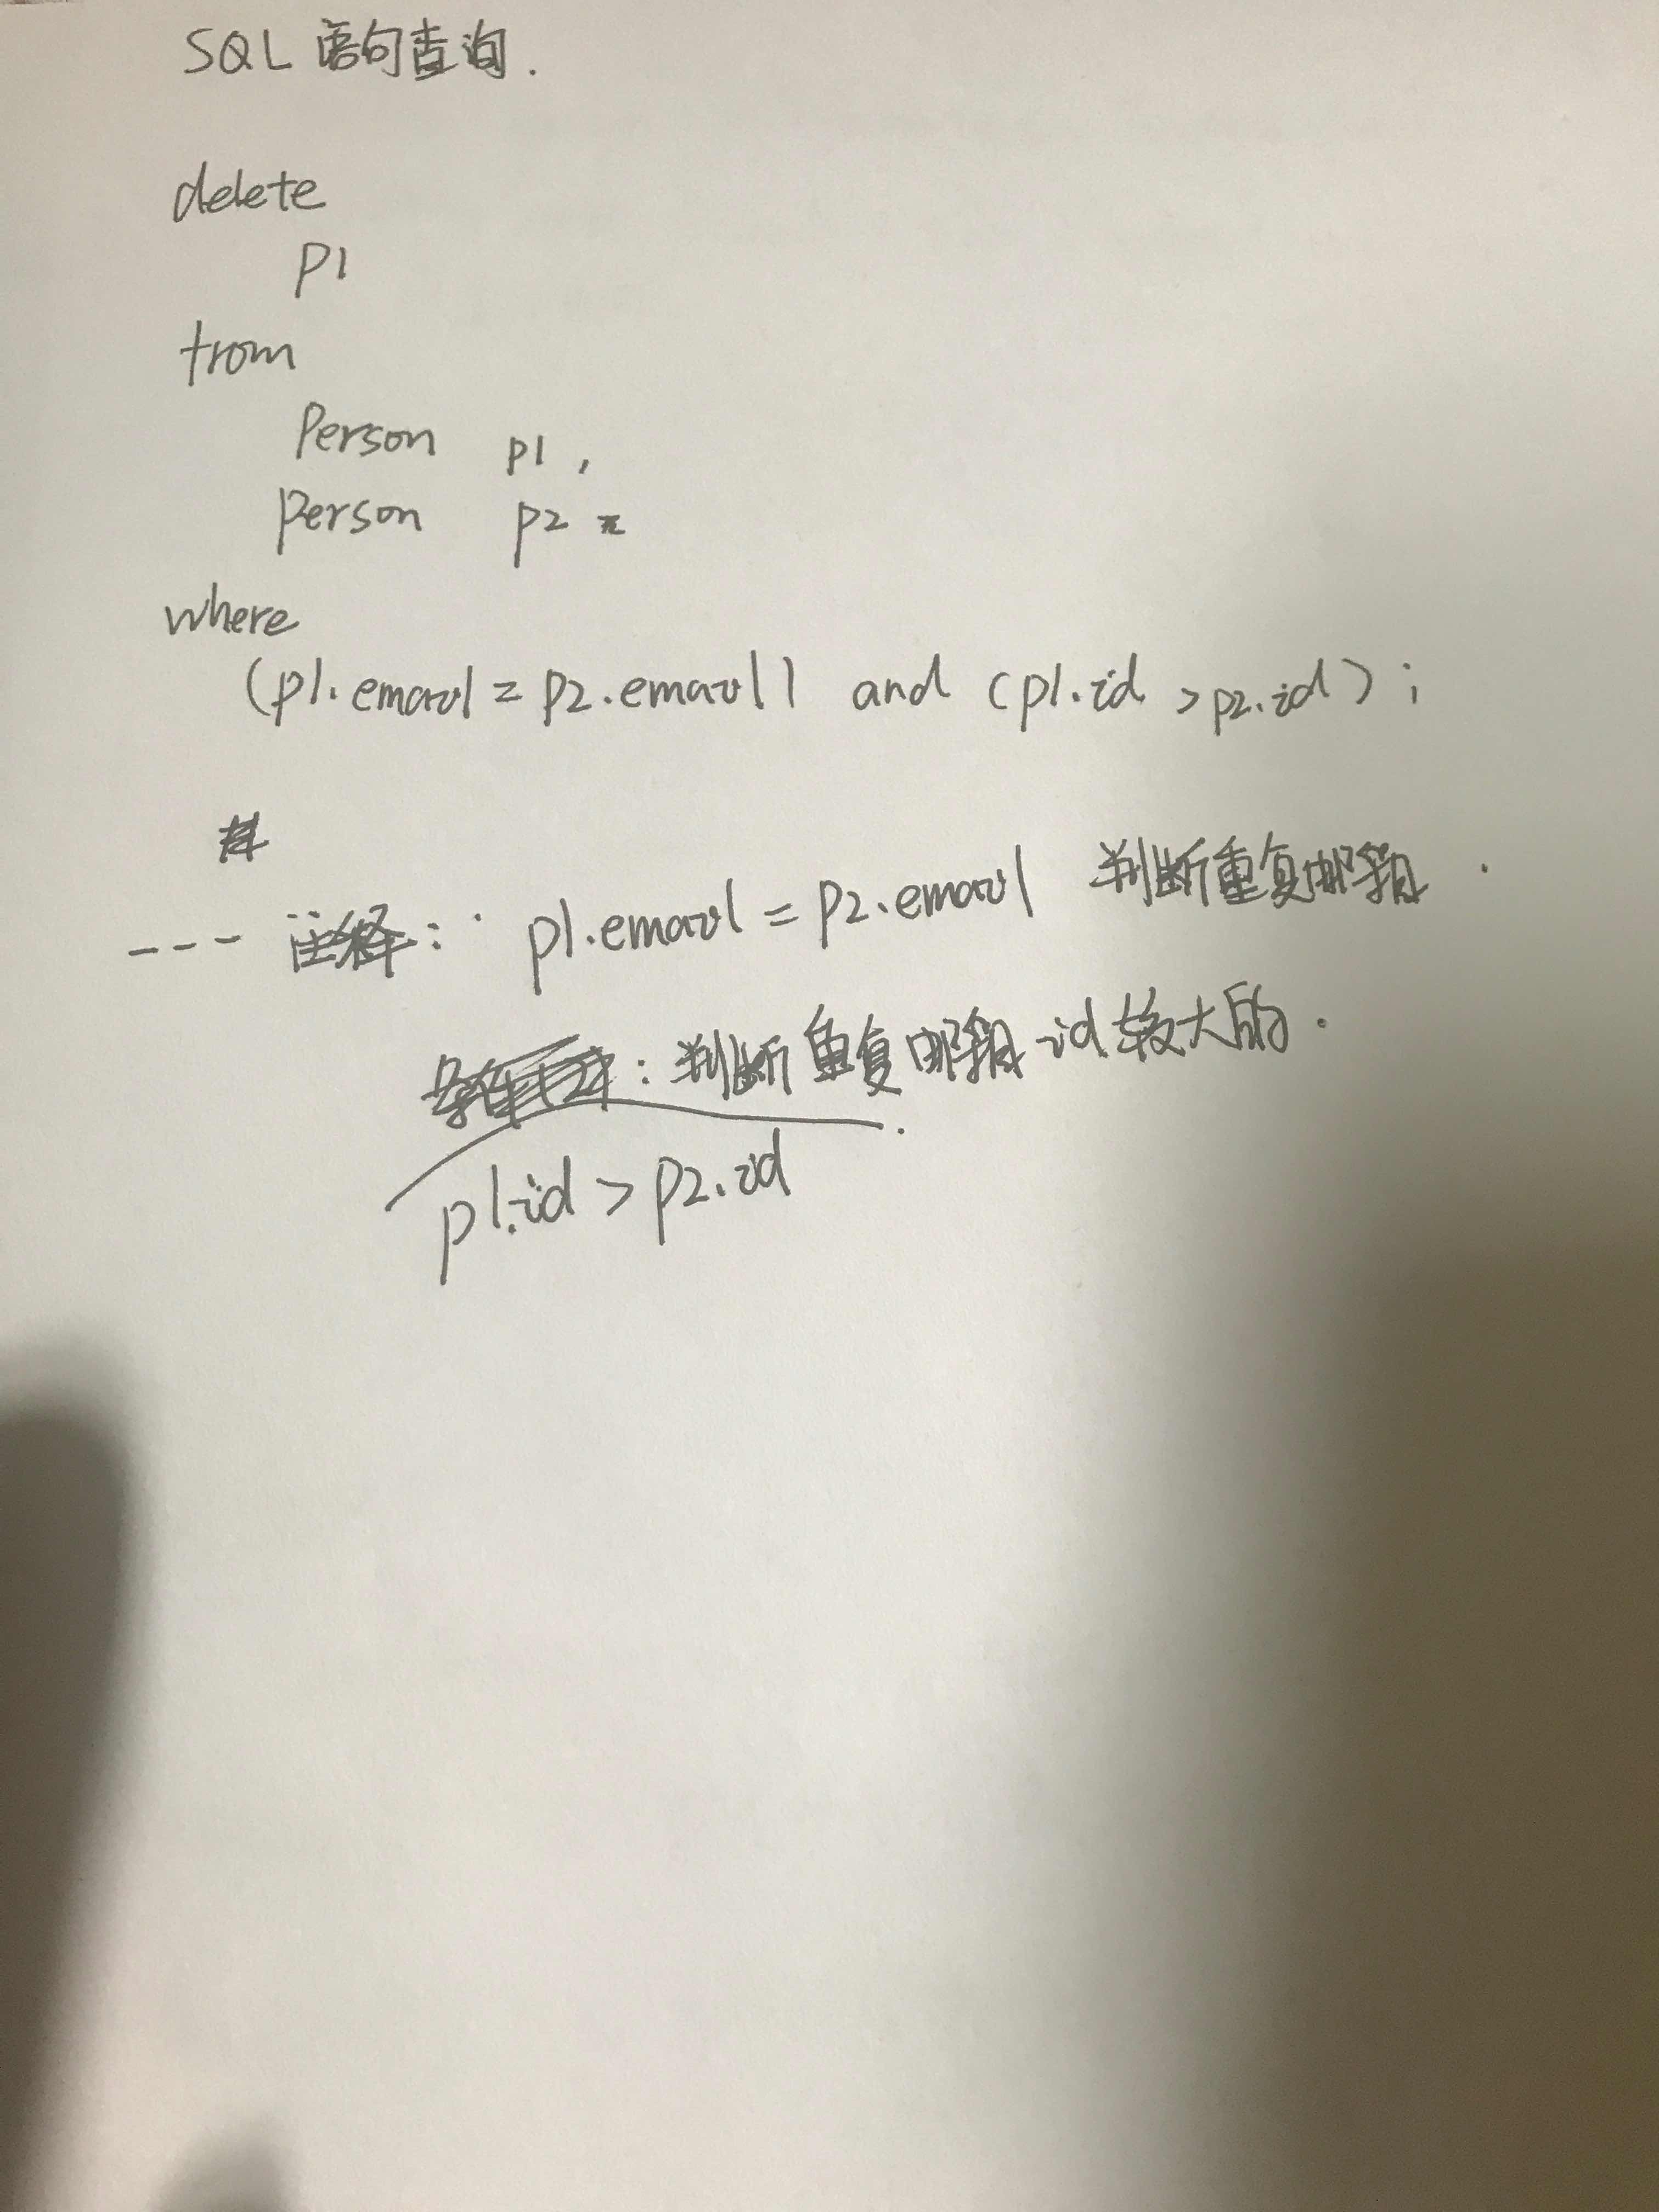 SQL 语句查询.
delete
p1
from
Person p1,
Person p2
where
(p1.email = p2.email) and (p1.id > p2.id);
--- 注释: p1.email = p2.email 判断重复邮箱.
: 判断重复邮箱 id 较大的.
p1.id > p2.id